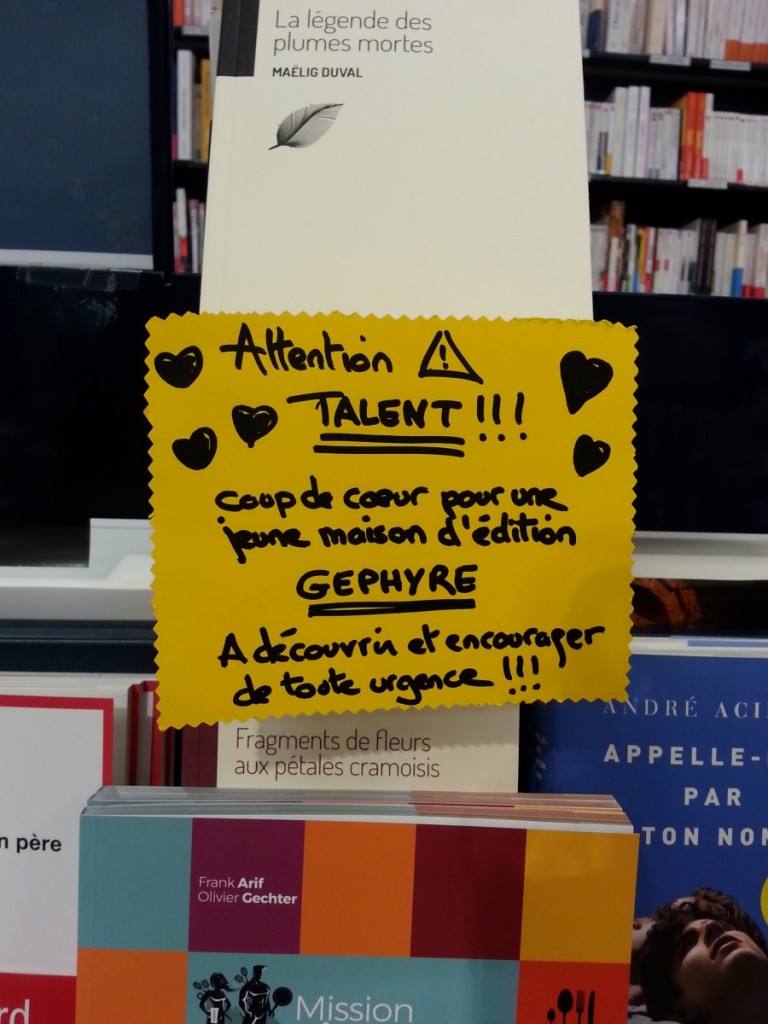 La légende des
plumes mortes
MAËLIG DUVAL
Attention
TALENT !!!
coup de cœur pour une
jeune maison d'édition
GEPHYRE
A découvrir et encourager
de toute urgence !!!
Fragments de fleurs
aux pétales cramoisis
ANDRÉ ACI
APPELLE-
PAR
TON NOM
n père
Frank Arif
Olivier Gechter
Mission
rd